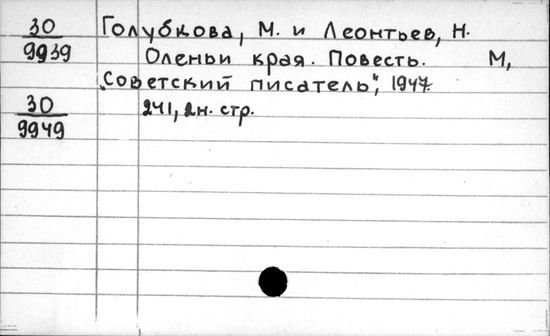 30 Голубкова, М. и Леонтьев, Н.
9939 Оленьи края. Повесть. М,
„Советский писатель“, 1947.
30 241, 2н. стр.
9949